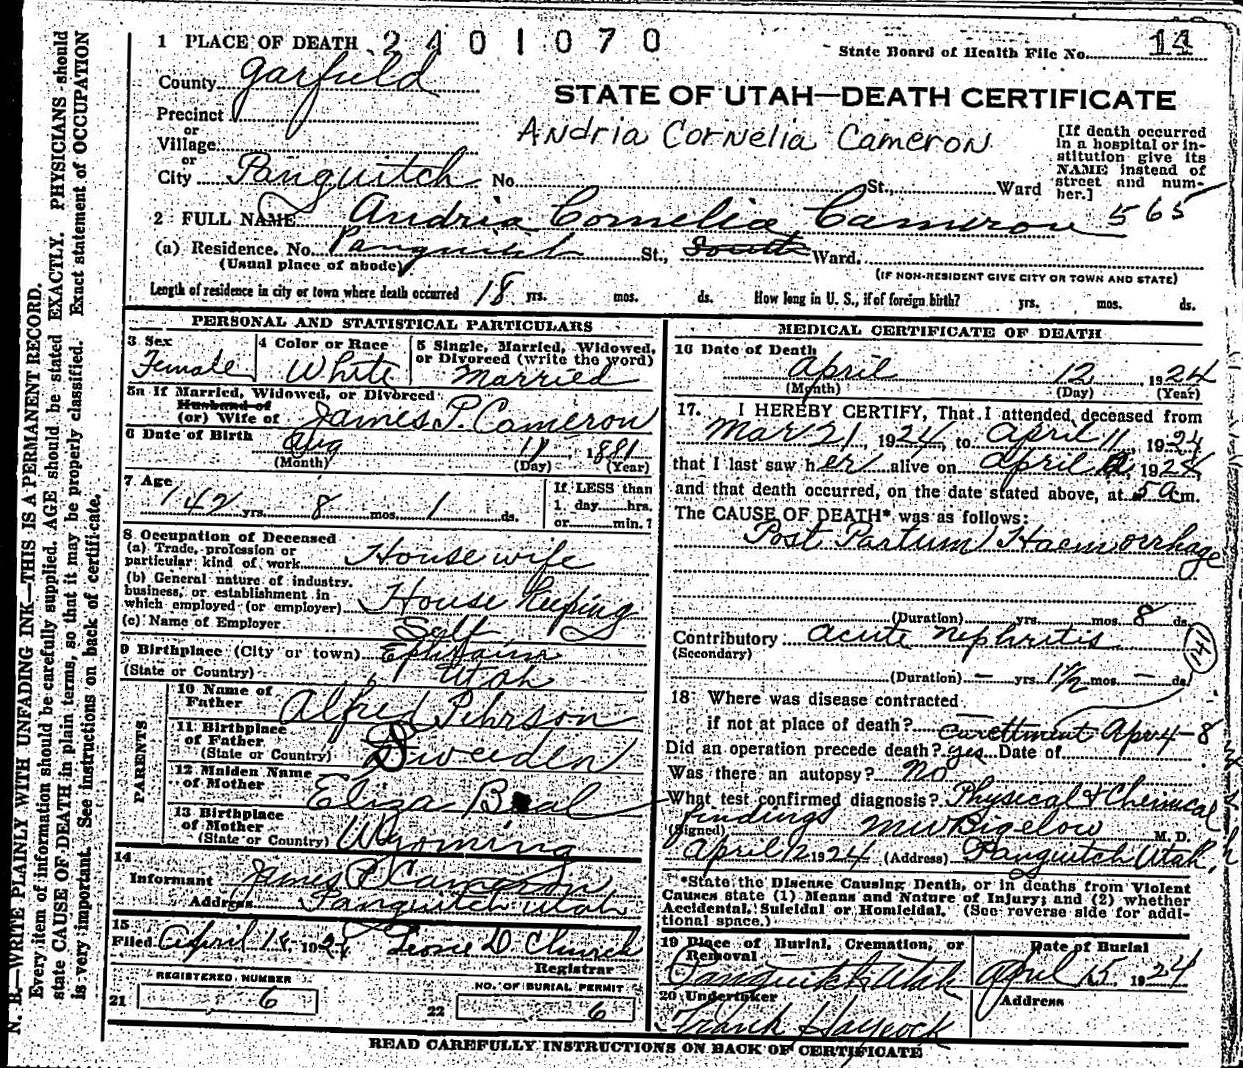 1 PLACE OF DEATH 2401070
State Board of Health File No. 14
County Garfield
STATE OF UTAH—DEATH CERTIFICATE
Precinct
or
Village
Andria Cornelia Cameron
[If death occurred in a hospital or institution give its NAME instead of street and number.]
or
City Panguitch No. St., Ward
565
2 FULL NAME Andria Cornelia Cameron
(a) Residence. No. Panguitch St., South Ward.
(Usual place of abode)
(IF NON-RESIDENT GIVE CITY OR TOWN AND STATE)
Length of residence in city or town where death occurred 18 yrs. mos. ds. How long in U. S., if of foreign birth? yrs. mos. ds.
PERSONAL AND STATISTICAL PARTICULARS
3 Sex
Female
4 Color or Race
White
5 Single, Married, Widowed,
or Divorced (write the word)
Married
5a If Married, Widowed, or Divorced
Husband of
(or) Wife of James P. Cameron
6 Date of Birth Aug 11, 1881
(Month) (Day) (Year)
7 Age
42 yrs. 8 mos. 1 ds.
If LESS than
1 day hrs.
or min.?
8 Occupation of Deceased
(a) Trade, profession or
particular kind of work House wife
(b) General nature of industry,
business, or establishment in
which employed (or employer) House Keeping
(c) Name of Employer Self
9 Birthplace (City or town) Ephraim
(State or Country) Utah
PARENTS
10 Name of
Father Alfred Pehrson
11 Birthplace
of Father
(State or Country) Sweeden
12 Maiden Name
of Mother Eliza Beal
13 Birthplace
of Mother
(State or Country) Wyoming
14
Informant James P Cameron
Address Panguitch Utah
15
Filed April 1924 D. Church
Registrar
REGISTERED NUMBER
21 6
NO. OF BURIAL PERMIT
22 6
MEDICAL CERTIFICATE OF DEATH
16 Date of Death
April 12, 1924
(Month) (Day) (Year)
17. I HEREBY CERTIFY, That I attended deceased from
Mar 21, 1924, to April 11, 1924
that I last saw her alive on April 1924,
and that death occurred, on the date stated above, at 5 a m.
The CAUSE OF DEATH* was as follows:
Post Partum Haemorrhage
(Duration) yrs. mos. 8 ds.
Contributory acute nephritis
(Secondary)
141
(Duration) — yrs. 1½ mos. — ds.
18 Where was disease contracted
if not at place of death? curettment Apr 4-8
Did an operation precede death? yes Date of
Was there an autopsy? No
What test confirmed diagnosis? Physical & Chemical
findings
(Signed) M W Bigelow M. D.
April 12 1924 (Address) Panguitch Utah
*State the Disease Causing Death, or in deaths from Violent
Causes state (1) Means and Nature of Injury; and (2) whether
Accidental, Suicidal or Homicidal. (See reverse side for additional space.)
19 Place of Burial, Cremation, or
Removal
Panguitch Utah
Date of Burial
April 15 1924
20 Undertaker
Frank Haycock
Address
READ CAREFULLY INSTRUCTIONS ON BACK OF CERTIFICATE
N. B.—WRITE PLAINLY WITH UNFADING INK—THIS IS A PERMANENT RECORD.
Every item of information should be carefully supplied. AGE should be stated EXACTLY. PHYSICIANS should
state CAUSE OF DEATH in plain terms, so that it may be properly classified. Exact statement of OCCUPATION
is very important. See instructions on back of certificate.